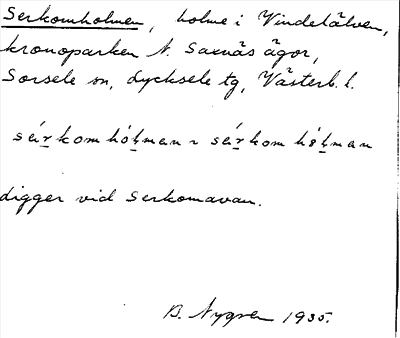 Serkomholmen, holme i Vindelälven,
kronoparken N. Saxnäs ägor,
Sorsele sn, Lycksele tg, Västerb. l.
digger vid Serkomavan.
B. Nygren 1935.